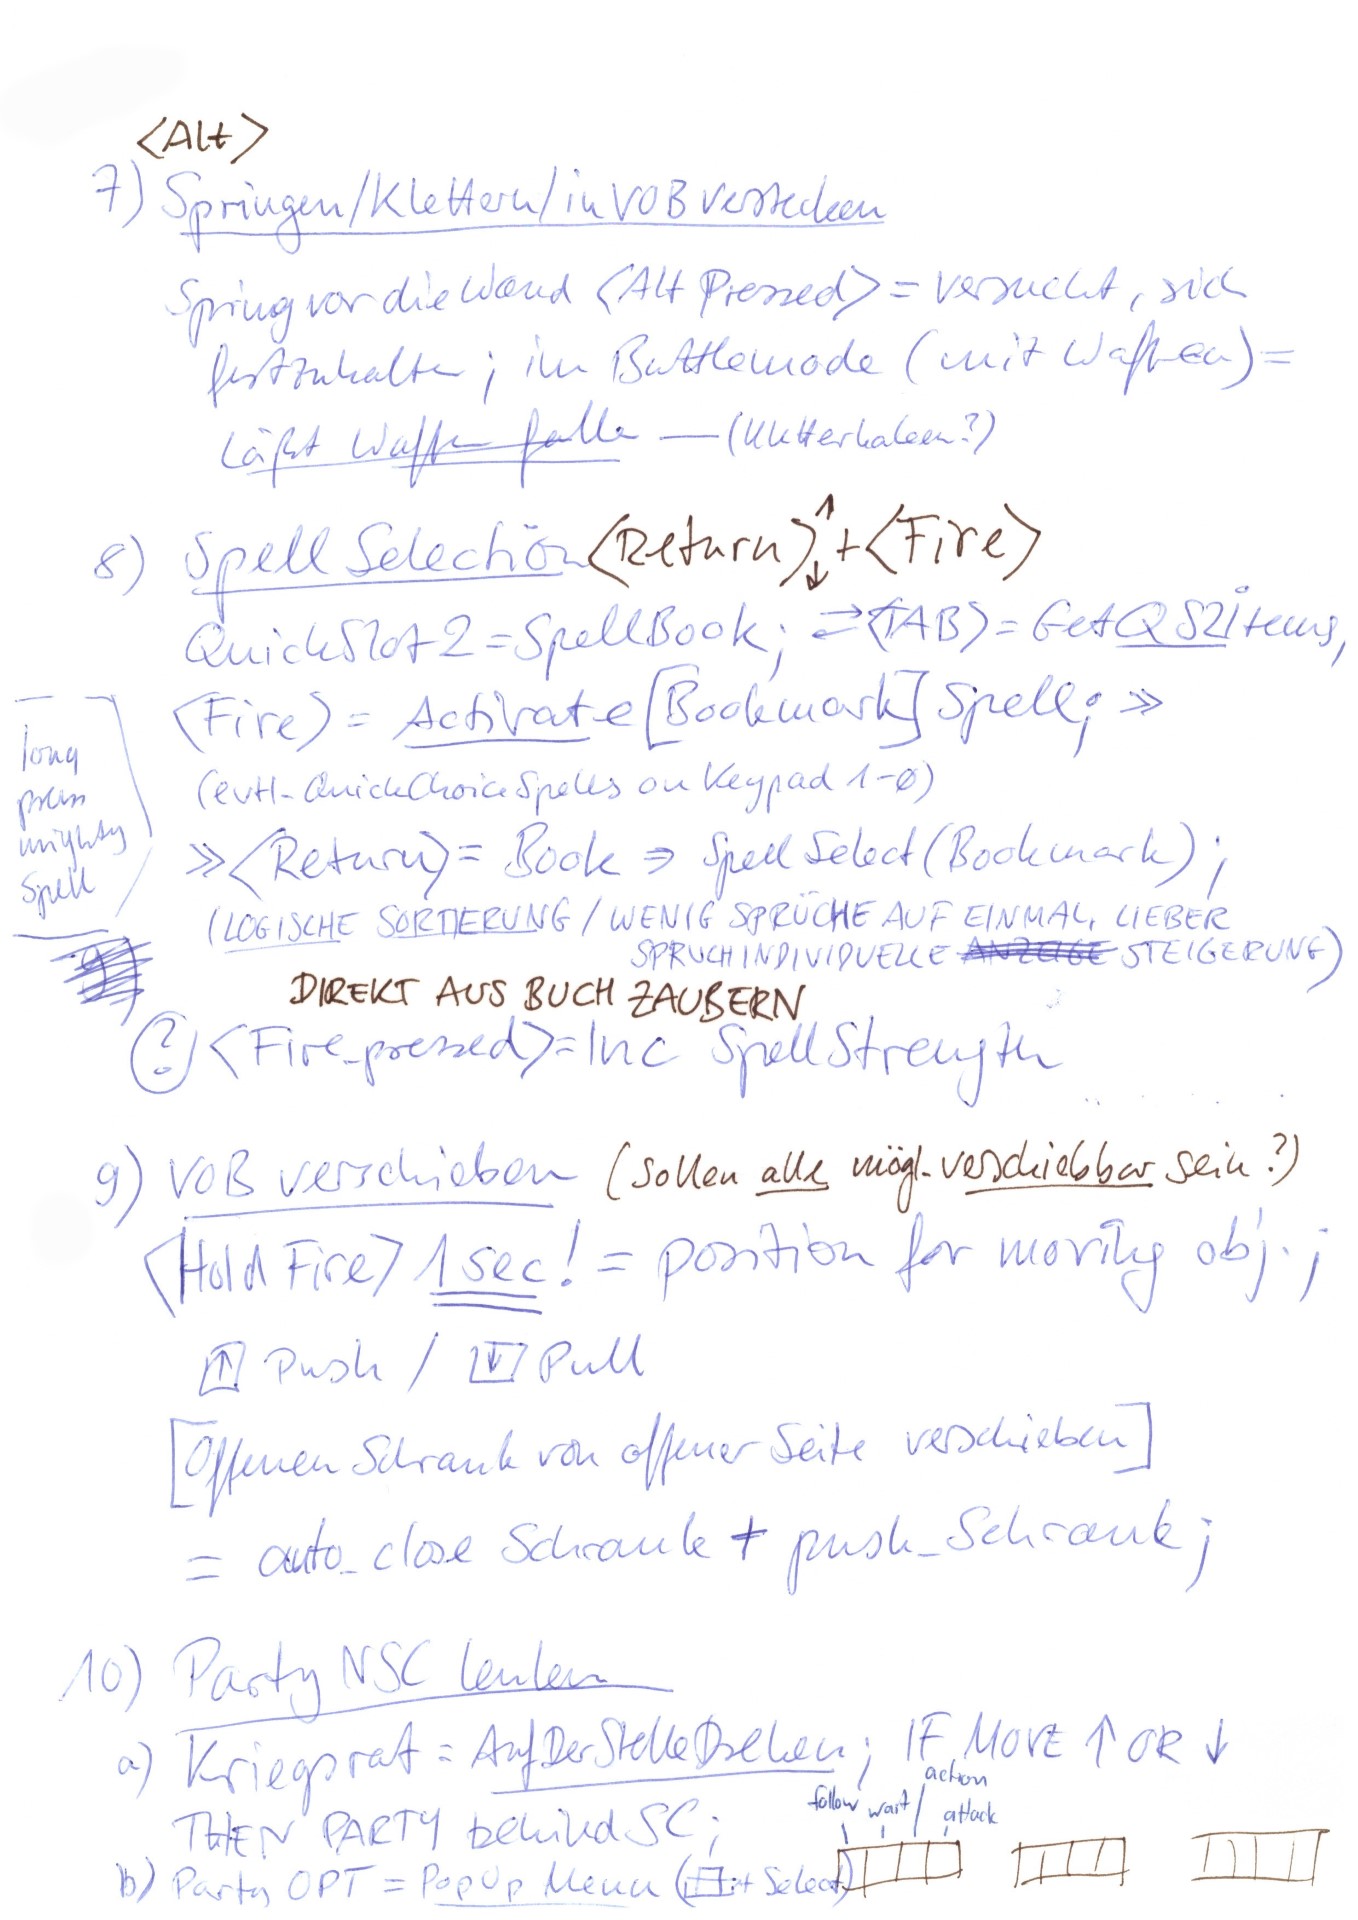 <Alt>
7) Springen/Klettern/in VOB verstecken
Spring vor die Wand <Alt Pressed> = versucht, sich
festzuhalten; im Battlemode (mit Waffen) =
Läßt Waffen fallen — (Kletterhaken?)
8) Spell Selection <Return>↑↓ + <Fire>
QuickSlot 2 = SpellBook; ⇄ <TAB> = GetQS2Items,
<Fire> = Activate [Bookmark] Spell; »
(evtl. QuickChoiceSpells on Keypad 1-0)
long
press
mighty
Spell
» <Return> = Book ⇒ Spell Select (Bookmark);
(LOGISCHE SORTIERUNG / WENIG SPRÜCHE AUF EINMAL, LIEBER
SPRUCHINDIVIDUELLE ANZEIGE STEIGERUNG)
DIREKT AUS BUCH ZAUBERN
(?) <Fire_pressed> = Inc SpellStrength
9) VOB verschieben (Sollen alle mögl. verschiebbar sein?)
<Hold Fire> 1 sec! = position for moving obj.;
↑ Push / ↓ Pull
[Offenen Schrank von offener Seite verschieben]
= auto_close Schrank + push_Schrank;
10) Party NSC lenken
a) Kriegsrat = AufDerStelleDrehen; IF MOVE ↑ OR ↓
THEN PARTY behind SC;
follow wait action attack
b) Party OPT = PopUp Menu (+ Select)